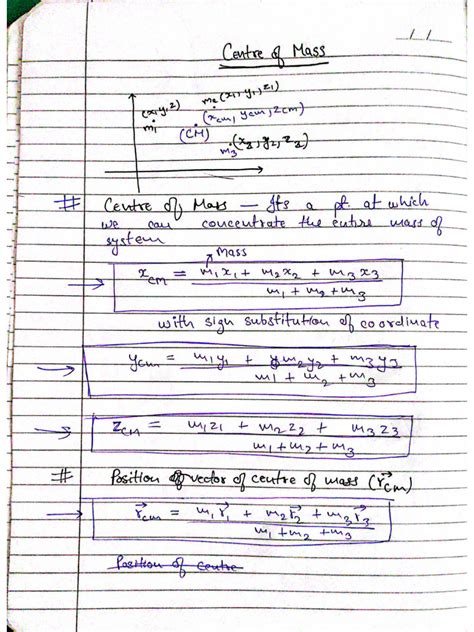 / /
Centre of Mass
m₂(x₁, y₁, z₁)
(x, y, z)
m₁
(xcm, ycm, zcm)
(CM)
m₃(x₃, y₂, z₃)
# Centre of Mass — Its a pt. at which
we can concentrate the entire mass of
system
Mass
→ x_cm = (m₁x₁ + m₂x₂ + m₃x₃) / (m₁ + m₂ + m₃)
with sign substitution of coordinate
→ y_cm = (m₁y₁ + m₂y₂ + m₃y₃) / (m₁ + m₂ + m₃)
→ z_cm = (m₁z₁ + m₂z₂ + m₃z₃) / (m₁ + m₂ + m₃)
# Position of vector of centre of mass (r⃗_cm)
→ r⃗_cm = (m₁r⃗₁ + m₂r⃗₂ + m₃r⃗₃) / (m₁ + m₂ + m₃)
Position of centre